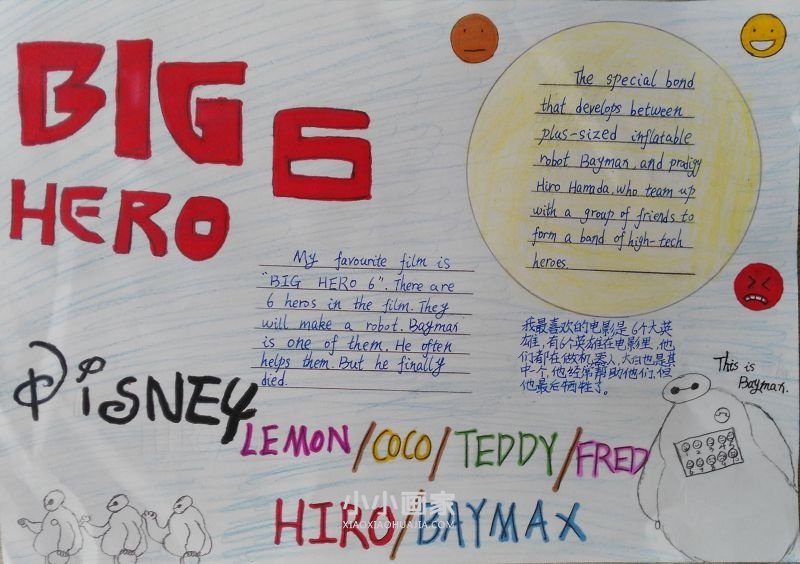 BIG
HERO 6
The special bond
that develops between
plus-sized inflatable
robot Bayman, and prodigy
Hiro Hamada, who team up
with a group of friends to
form a band of high-tech
heroes.
My favourite film is
"BIG HERO 6". There are
6 heros in the film. They
will make a robot. Bayman
is one of them. He often
helps them. But he finally
died.
我最喜欢的电影是6个大英
雄,有6个英雄在电影里,他
们都在做机器人,大白也是其
中一个,他经常帮助他们,但
他最后牺牲了。
This is
Bayman.
DiSNEY
LEMON/COCO/TEDDY/FRED
HIRO/BAYMAX
小小画家
XIAOXIAOHUAJIA.COM